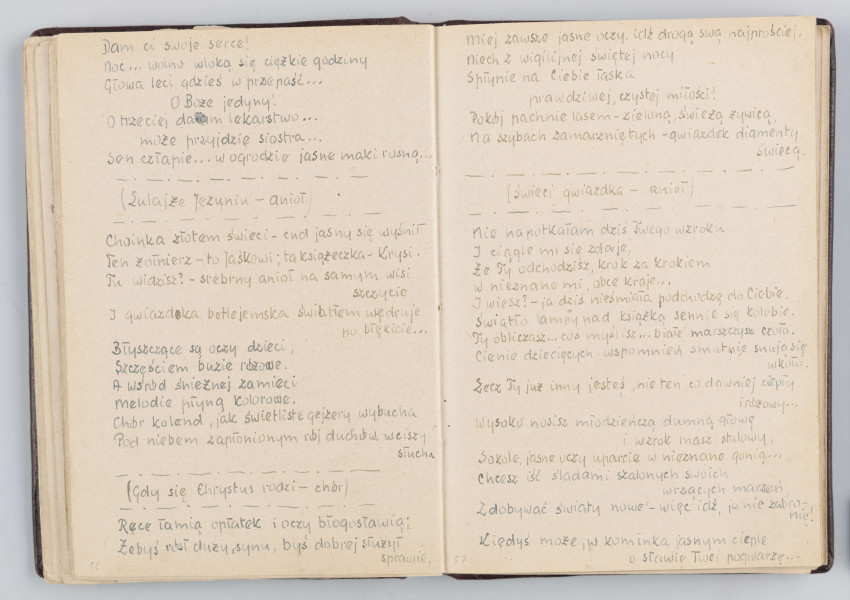 Dam ci swoje serce!
Noc... wolno wloką się ciężkie godziny
Głowa leci gdzieś w przepaść...
O Boże jedyny!
O trzeciej dałam lekarstwo...
może przyjdzie siostra...
Sen człapie... w ogrodzie jasne maki rosną...
(Lulajże Jezuniu - anioł)
Choinka złotem świeci - cud jasny się wyśnił
Ten żołnierz - to Jaśkowi; ta książeczka - Krysi.
Tu widzisz? - srebrny anioł na samym wisi
szczycie
I gwiazdka betlejemska światłem wędruje
po błękicie...
Błyszczące są oczy dzieci,
Szczęściem buzie różowe.
A wśród śnieżnej zamieci
melodie płyną kolorowe.
Chór kolend, jak świetliste gejzery wybucha
Pod niebem zapłonionym rój duchów w ciszy
słucha
(Gdy się Chrystus rodzi - chór)
Ręce łamią opłatek i oczy błogosławią;
Żebyś rósł duży, synu, byś dobrej służył
sprawie,
56
Miej zawsze jasne oczy, idź drogą swą najprościej,
Niech z wigilijnej świętej nocy
Spłynie na Ciebie łaska
prawdziwej, czystej miłości!
Pokój pachnie lasem - zieloną, świeżą żywicą,
Na szybach zamarzniętych - gwiazdek diamenty
świecą.
(Świeci gwiazdka - anioł)
Nie napotkałam dziś Twego wzroku
I ciągle mi się zdaje,
Że Ty odchodzisz, krok za krokiem
w nieznane mi, obce kraje...
I wiesz? - ja dziś nieśmiała podchodzę do Ciebie.
Światło lampy nad książką sennie się kolebie.
Ty obliczasz... coś myślisz... białe marszczysz czoło.
Cienie dziecięcych wspomnień smutnie snują się
wkoło.
Lecz Ty już inny jesteś, nie ten co dawniej ciepły
i różowy...
Wysoko nosisz młodzieńczą dumną głowę
i wzrok masz stalowy,
Sokole, jasne oczy uparcie w nieznane gonią...
Chcesz iść śladami szalonych swoich
wrzących marzeń,
Zdobywać światy nowe - więc idź, ja nie zabro-
nię!
Kiedyś może, w kominka jasnym cieple
o sławie Twej pogwarzę...
57